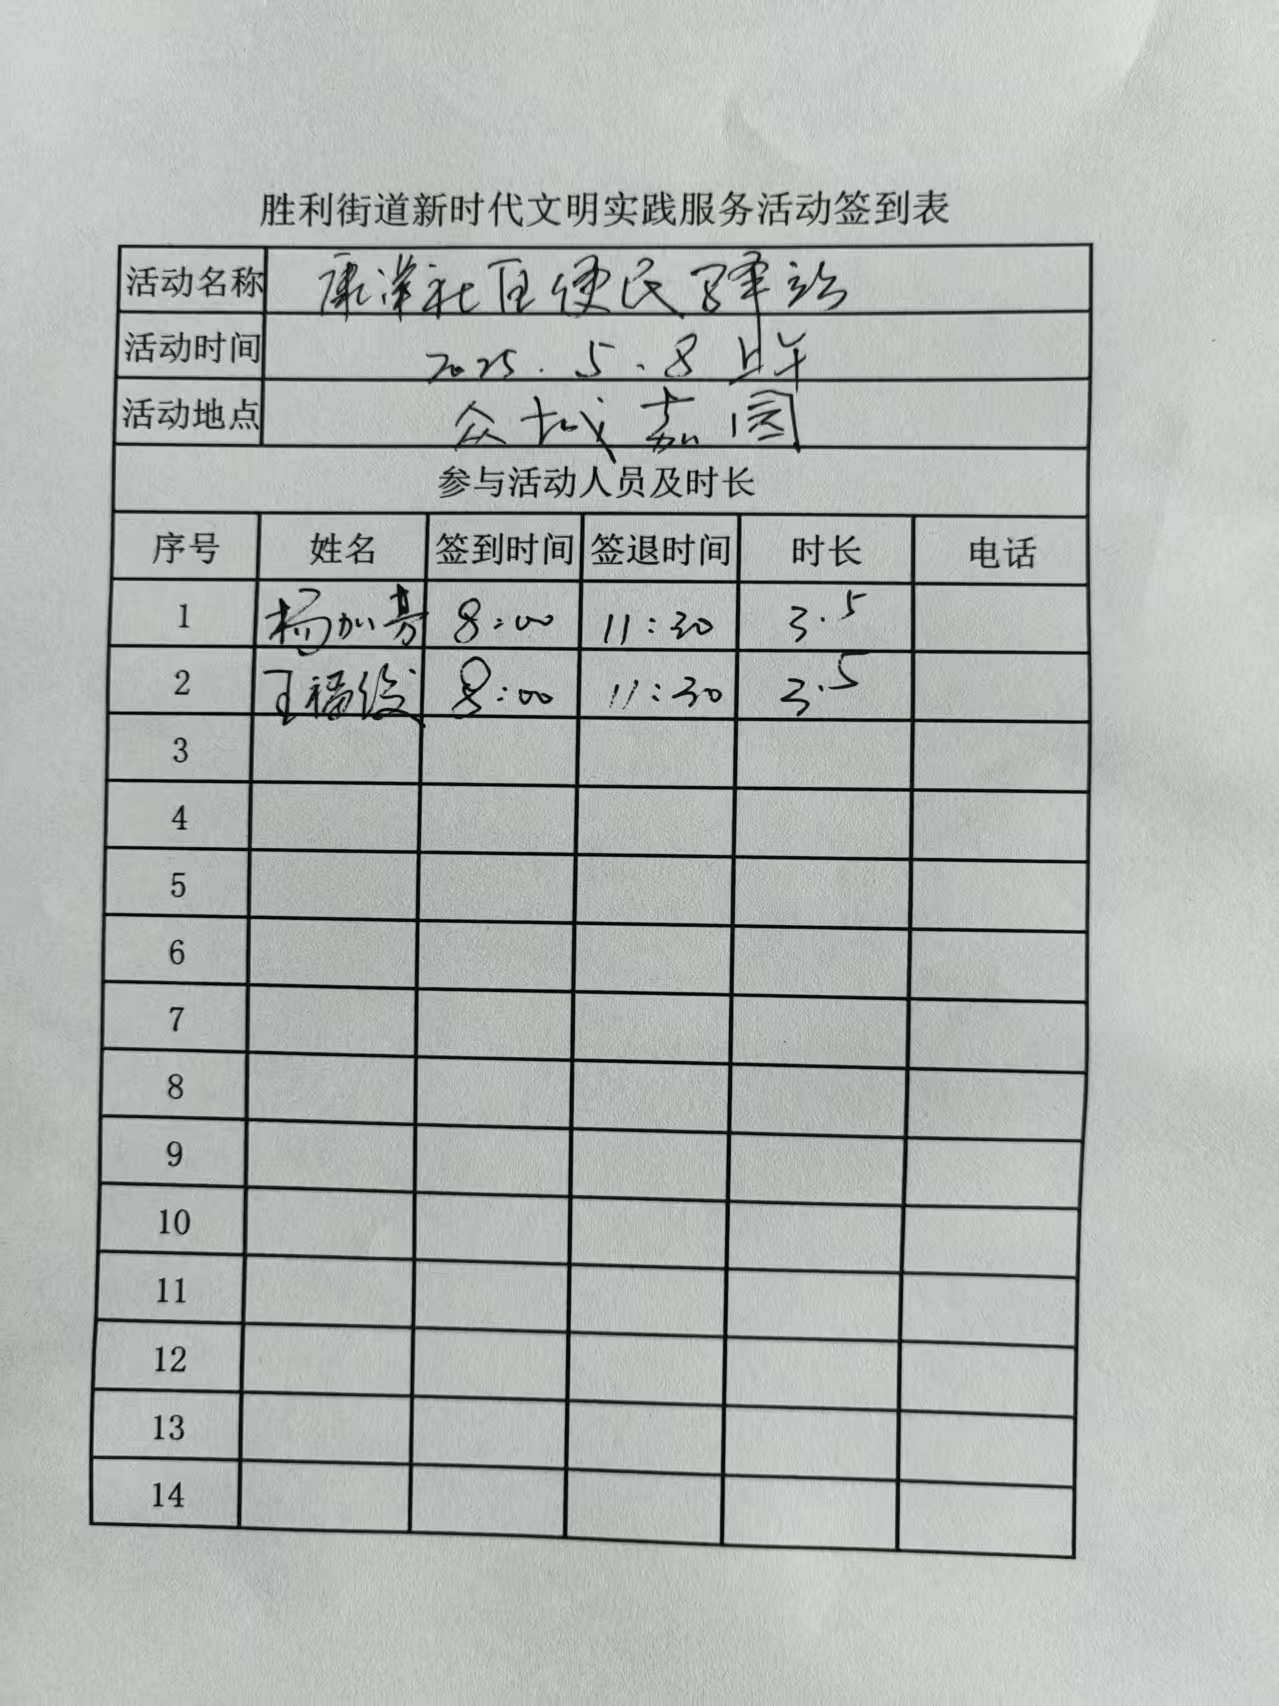 胜利街道新时代文明实践服务活动签到表
活动名称 康洋社区便民驿站
活动时间 2025.5.8上午
活动地点 众城嘉园
参与活动人员及时长
序号 姓名 签到时间 签退时间 时长 电话
1 杨加芬 8:00 11:30 3.5
2 王福俊 8:00 11:30 3.5
3
4
5
6
7
8
9
10
11
12
13
14